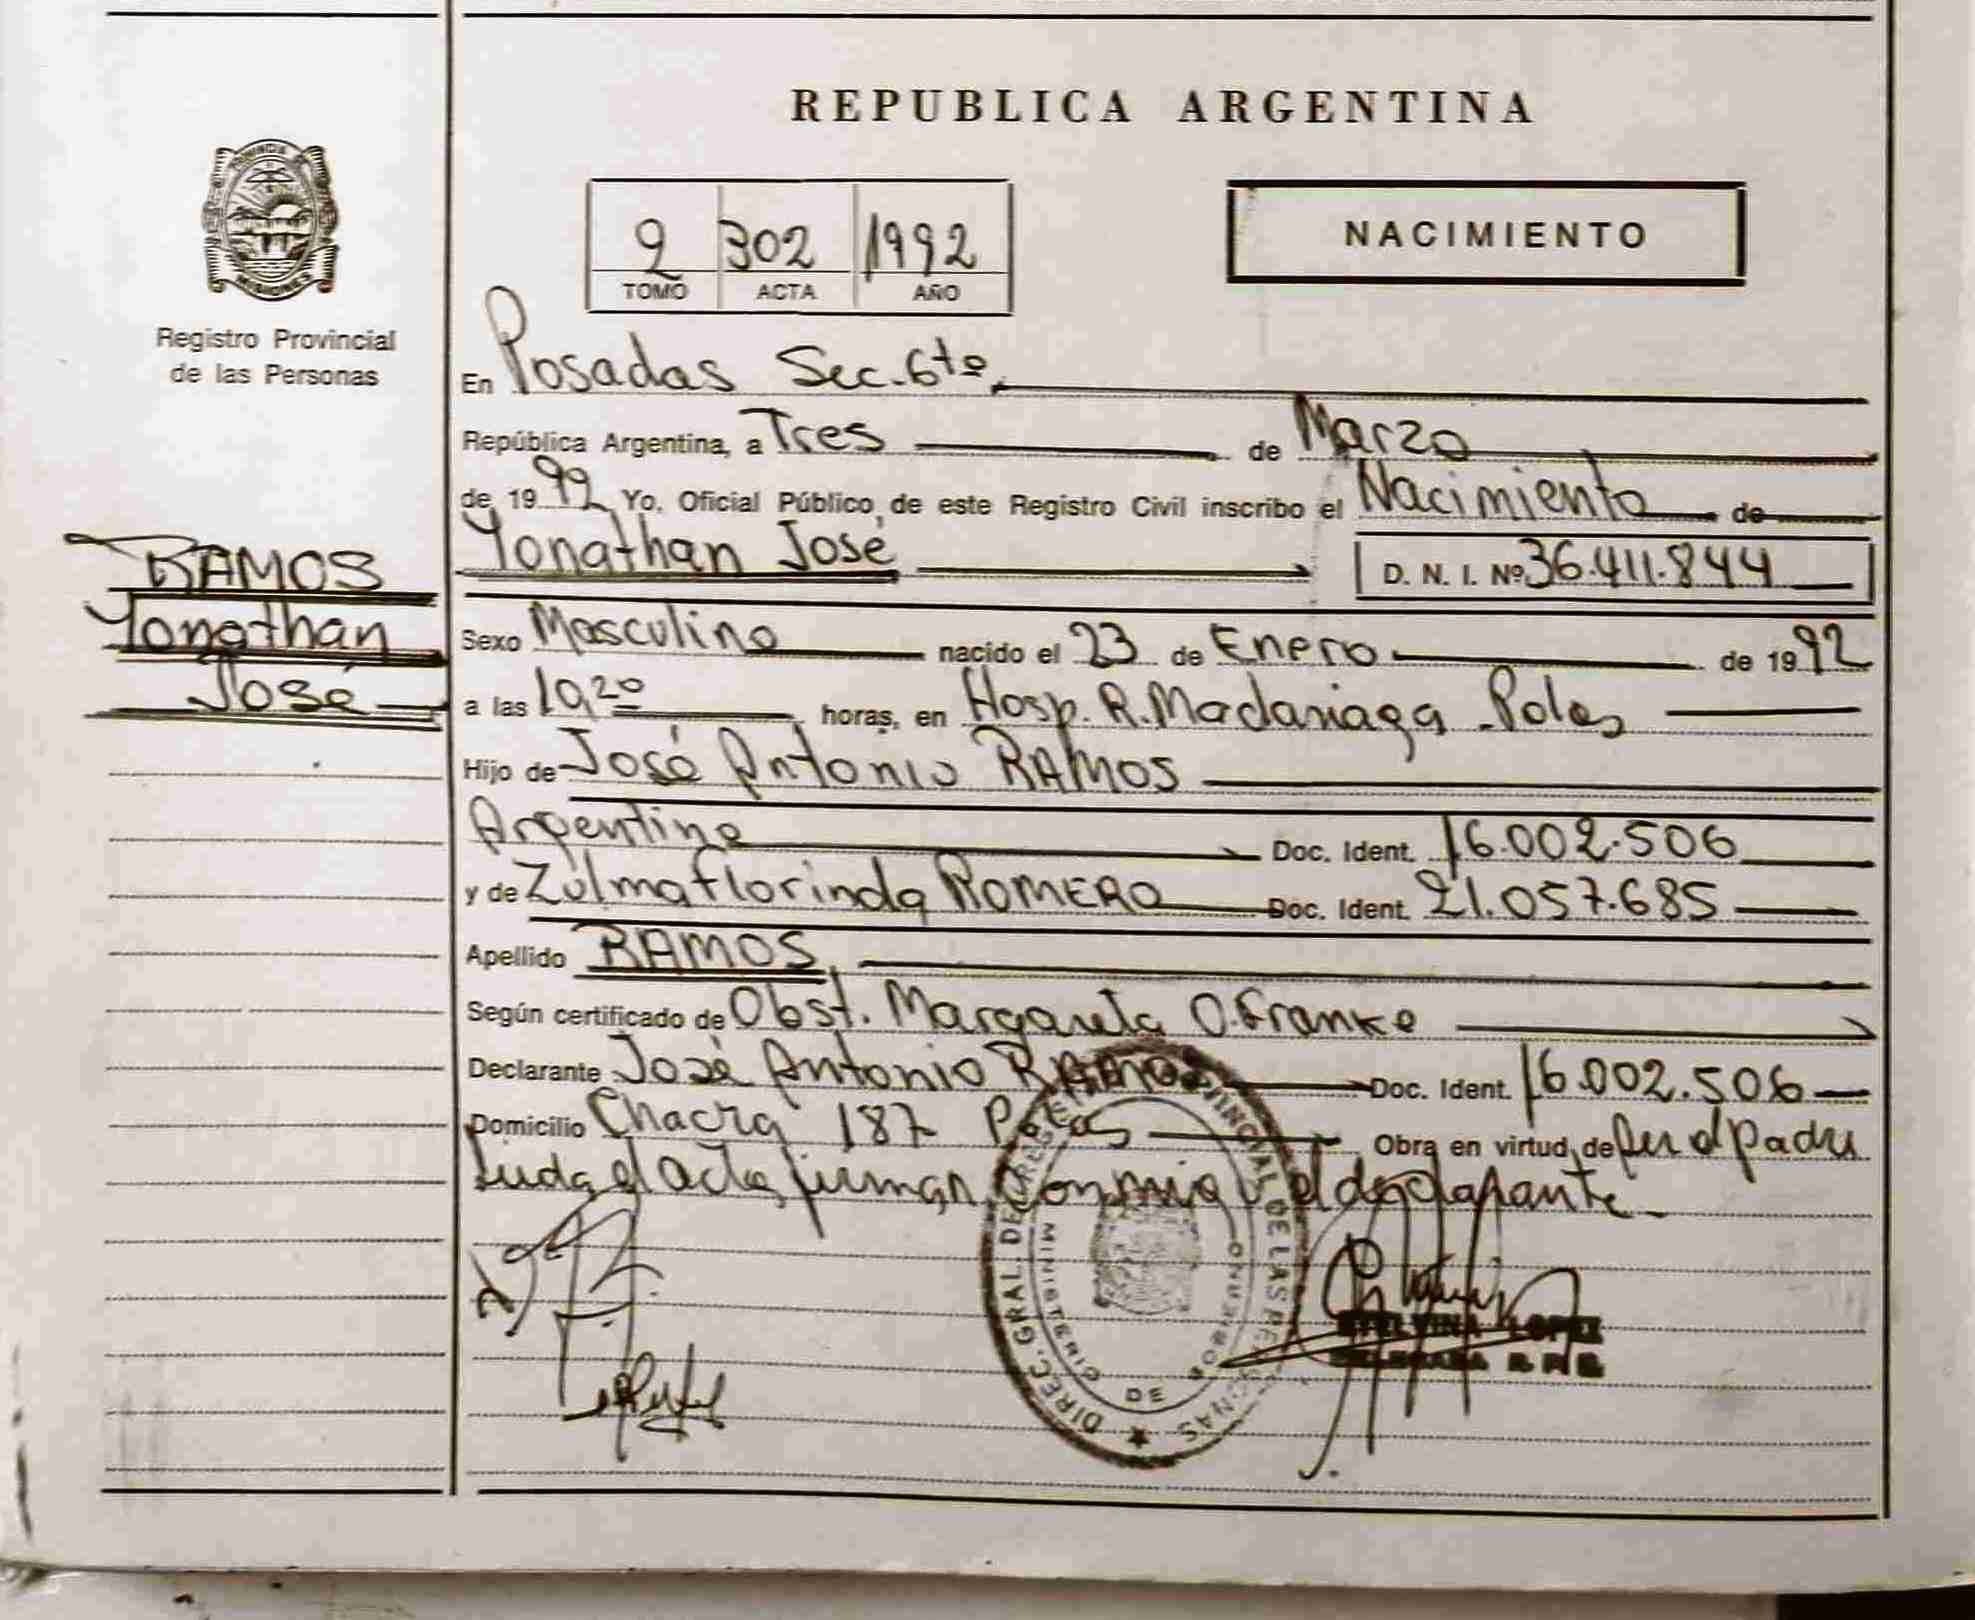 REPUBLICA ARGENTINA
PROVINCIA DE
MISIONES
Registro Provincial
de las Personas
2 302 1992
TOMO ACTA AÑO
NACIMIENTO
En Posadas Sec. 6ta
República Argentina, a Tres de Marzo
de 1992 Yo, Oficial Público de este Registro Civil inscribo el Nacimiento de
Yonathan José D. N. I. Nº 36.411.844
RAMOS
Yonathan
José
Sexo Masculino nacido el 23 de Enero de 1992
a las 19,20 horas, en Hosp. R. Madariaga Pdas
Hijo de José Antonio RAMOS
Argentino Doc. Ident. 16.002.506
y de Zulma Florinda ROMERO Doc. Ident. 21.057.685
Apellido RAMOS
Según certificado de Obst. Margarita O. Franke
Declarante José Antonio RAMOS Doc. Ident. 16.002.506
Domicilio Chacra 187 Pdas Obra en virtud de ser el padre
Leida el Acta firman Conmigo el declarante
DIREC. GRAL. DEL REG. PROVINCIAL DE LAS PERSONAS
MINISTERIO DE GOBIERNO
LOPEZ